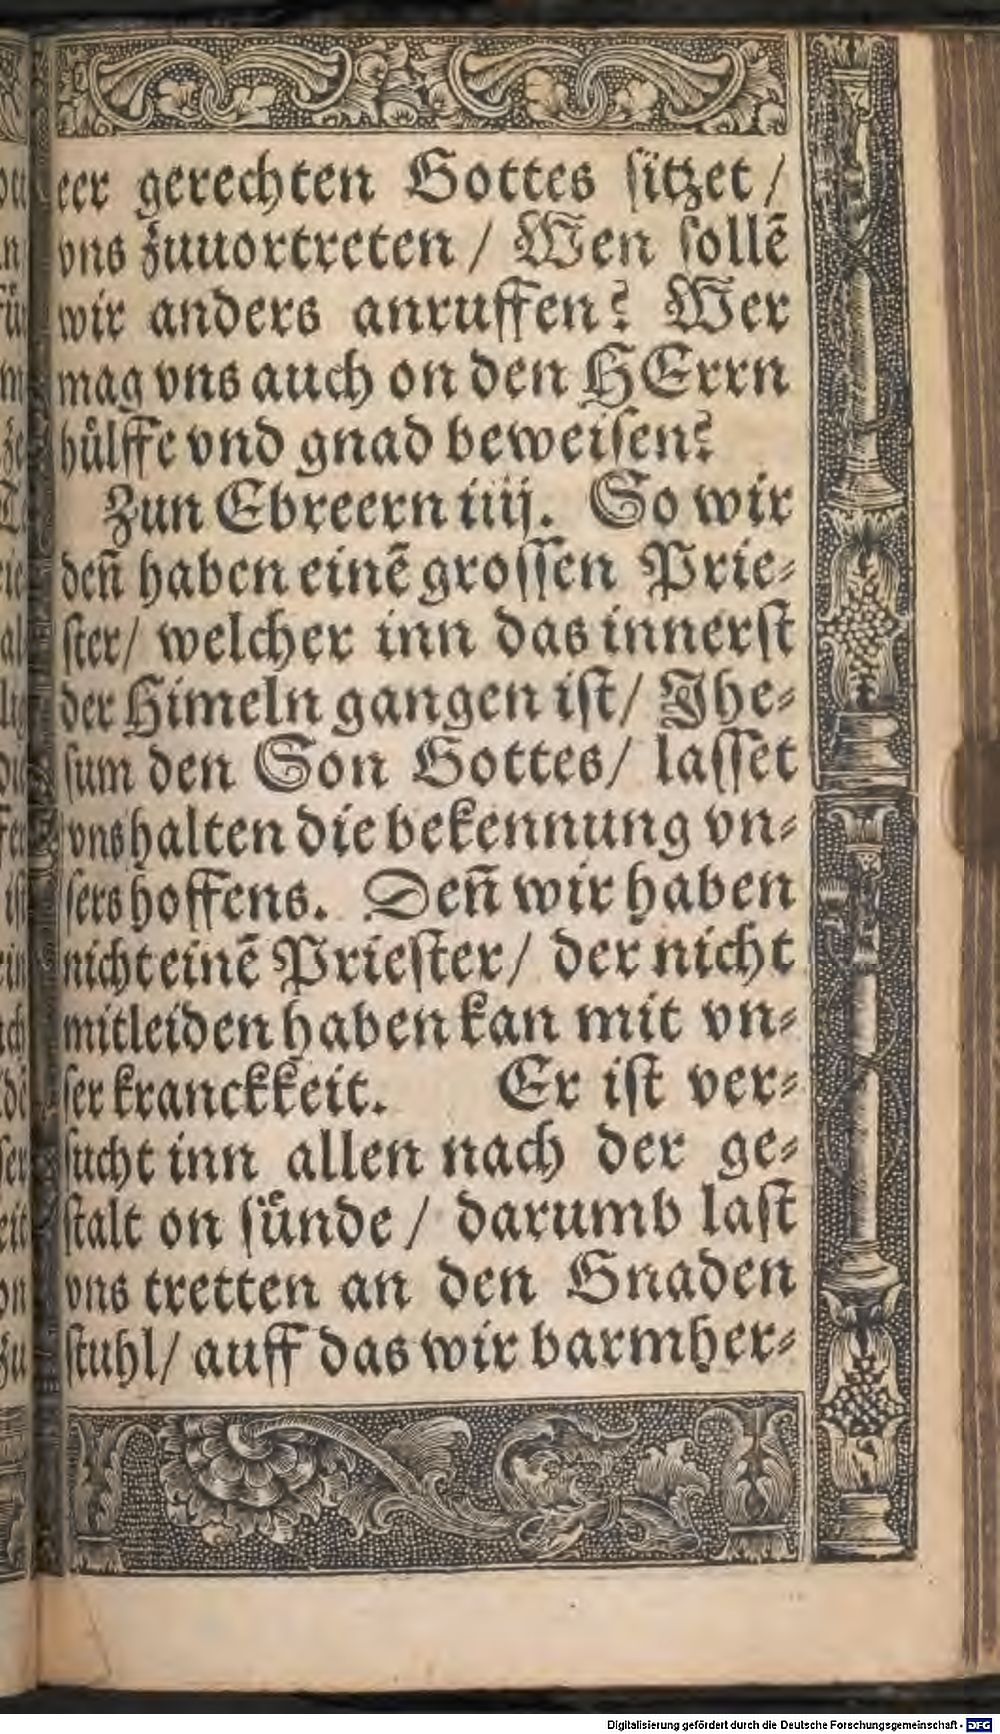 eer gerechten Gottes ſitzet /
vns zuuortreten / Wen ſollẽ
wir anders anruffen? Wer
mag vns auch on den HErrn
huͤlffe vnd gnad beweiſen?
Zun Ebreern iiij. So wir
deñ haben einẽ groſſen Prie⸗
ſter/ welcher inn das innerſt
der Himeln gangen iſt/ Jhe⸗
ſum den Son Gottes/ laſſet
vns halten die bekennung vn⸗
ſers hoffens. Deñ wir haben
nicht einẽ Prieſter/ der nicht
mitleiden haben kan mit vn⸗
ſer kranckkeit. Er iſt ver⸗
ſucht inn allen nach der ge⸗
ſtalt on ſuͤnde / darumb laſt
vns tretten an den Gnaden
ſtuhl/ auff das wir barmher⸗
Digitalisierung gefördert durch die Deutsche Forschungsgemeinschaft - DFG